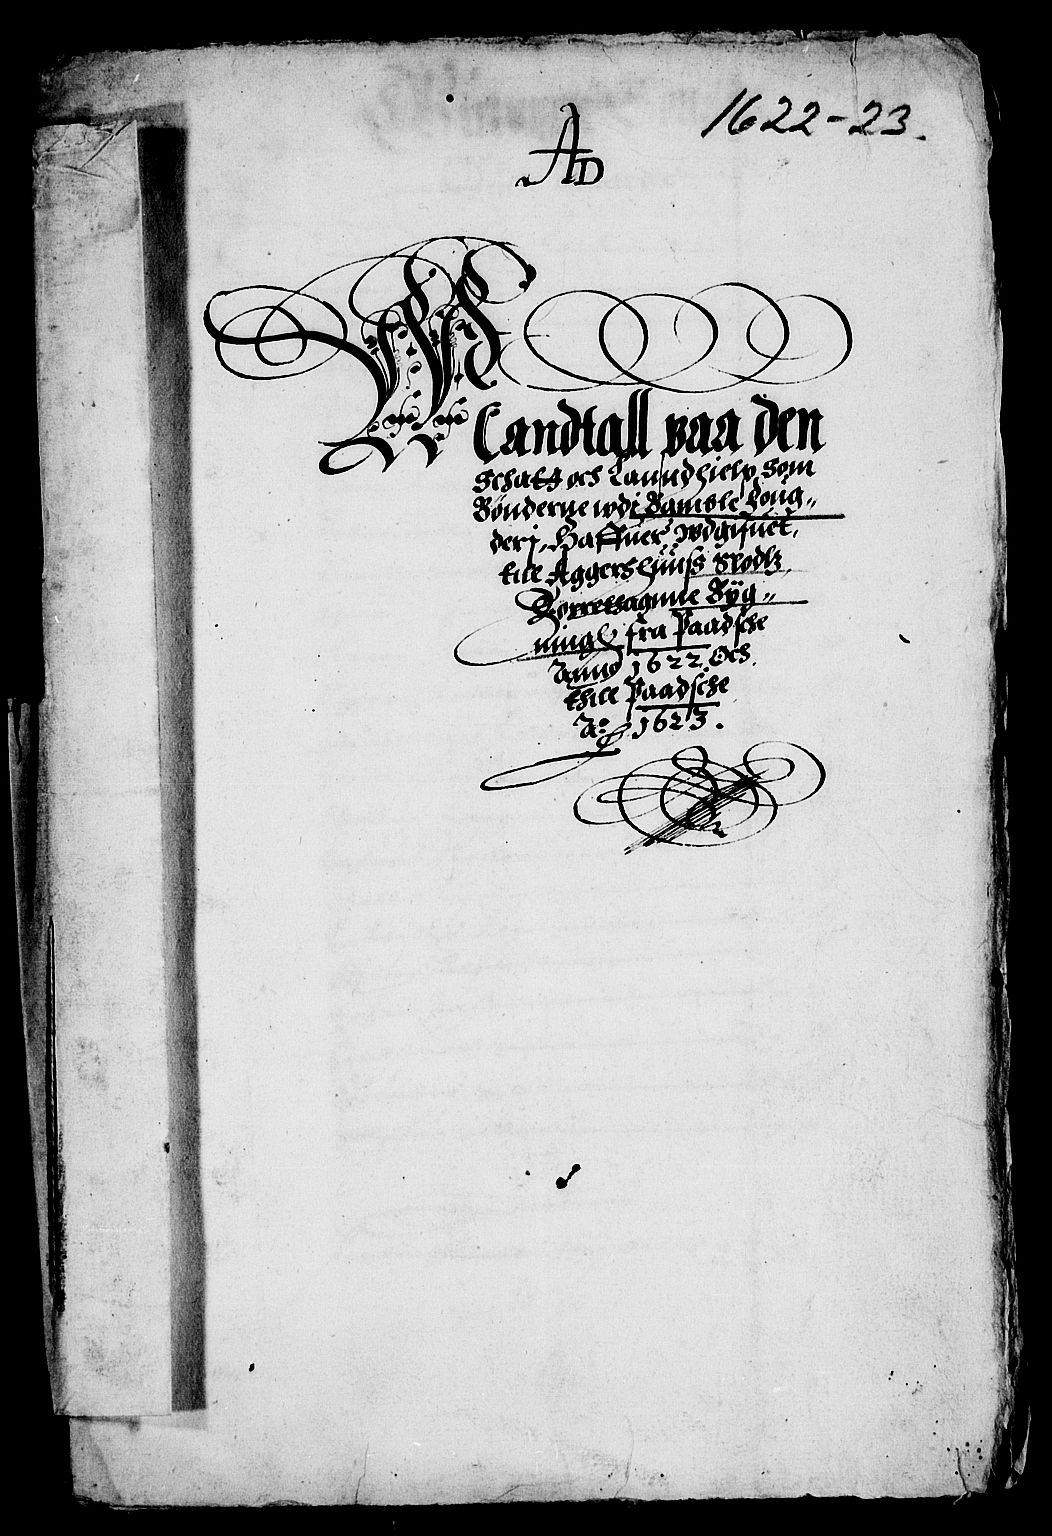 1622-23.
AD
Mandtall paa den
Schatt och Lanndhielp Som
Bønderne wdi Bamble Long„
derj, Haffuer wdgiffuet,
till Aggershuuss Slodtz
Borrettzagnne Byg„
ning fra Paadsche
Anno 1622 Och
thill Paadsche
Ao 1623.